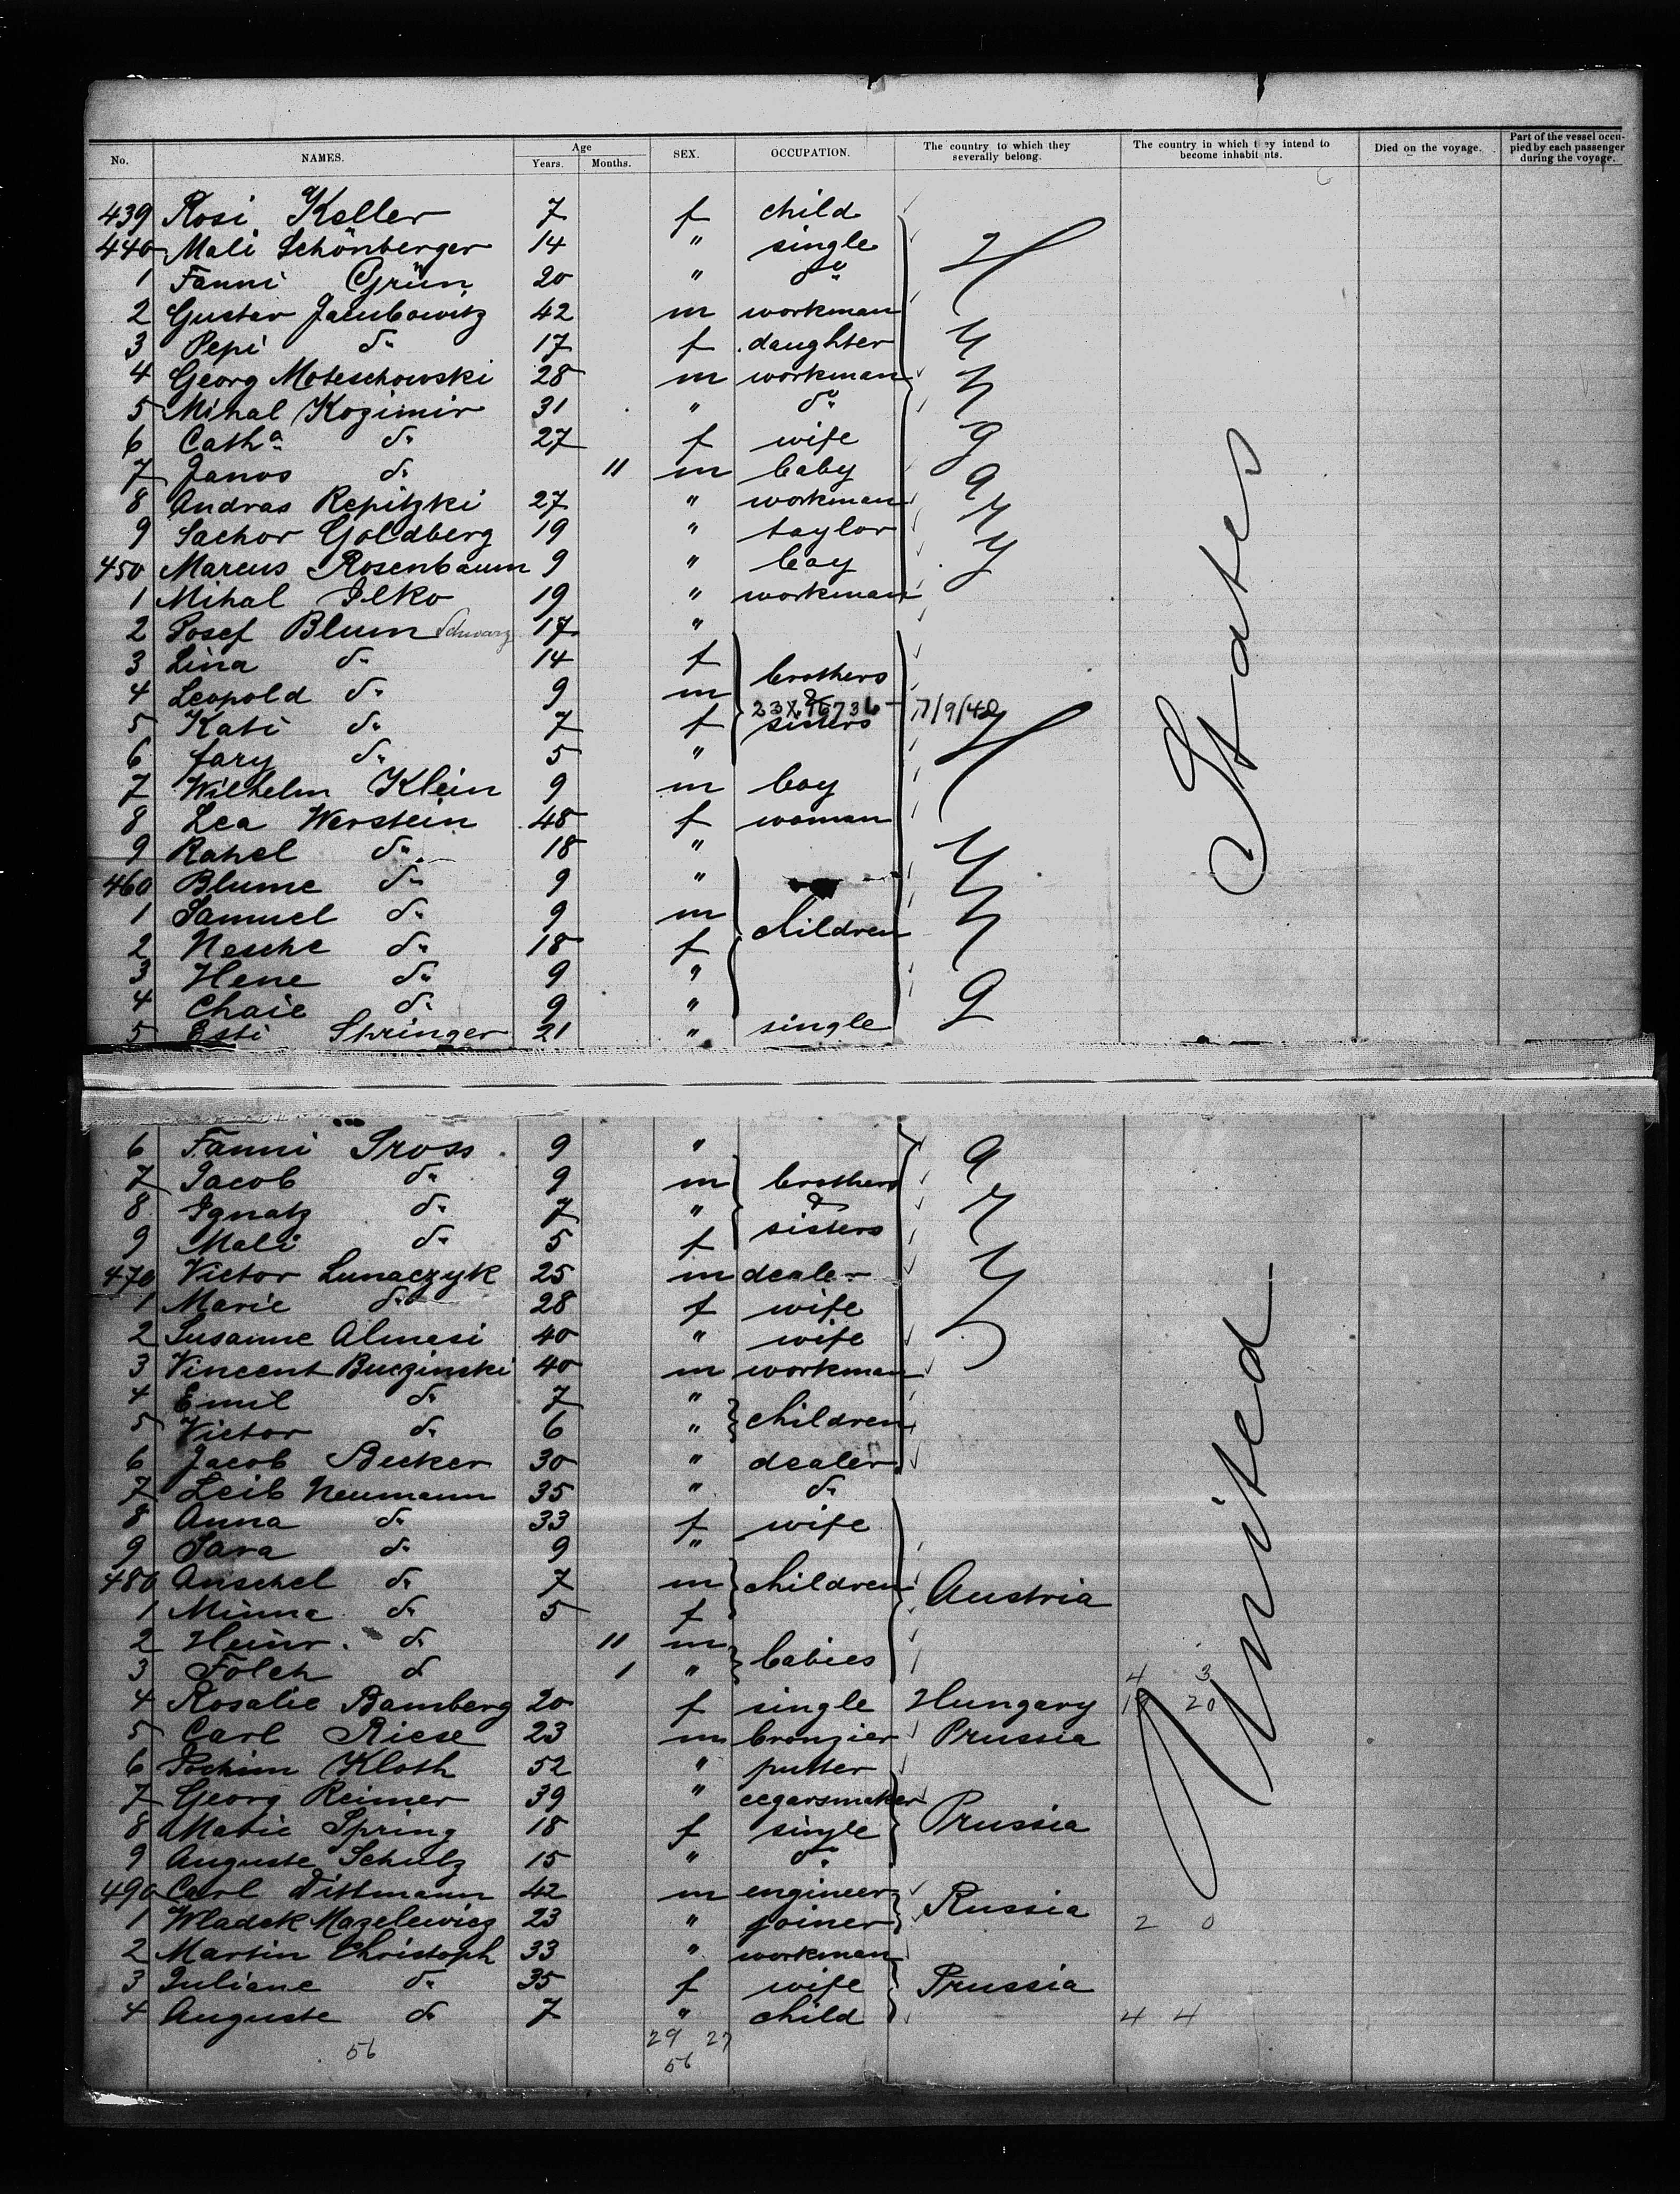 No. NAMES. Age Years. Months. SEX. OCCUPATION. The country to which they severally belong. The country in which they intend to become inhabitants. Died on the voyage. Part of the vessel occupied by each passenger during the voyage.
439 Rosi Keller 7 f child
440 Mali Schönberger 14 " single
1 Fanni Grün 20 " do
2 Gustav Jacubowitz 42 m workman
3 Pepi do 17 f daughter
4 Georg Moteschowski 28 m workman
5 Mihal Kozimir 31 " do
6 Catha do 27 f wife
7 Janos do 11 m baby
8 Andras Repitzki 27 " workman
9 Sachor Goldberg 19 " taylor
450 Marcus Rosenbaum 9 " boy
1 Mihal Ilko 19 " workman
2 Josef Blum Schwarz 17 "
3 Lina do 14 f
4 Leopold do 9 m brothers
5 Kati do 7 f & sisters 7/9/40
6 Sary do 5 "
7 Wilhelm Klein 9 m boy
8 Lea Werstein 48 f woman
9 Rahel do 18 "
460 Blume do 9 "
1 Samuel do 9 m children
2 Nesche do 18 f
3 Hene do 9 "
4 Chaie do 9 "
5 Esti Springer 21 " single
Hungary
6 Fanni Gross 9 "
7 Jacob do 9 m brothers
8 Ignatz do 7 " &
9 Mali do 5 f sisters
470 Victor Lunaczyk 25 m dealer
1 Marie do 28 f wife
2 Susanne Almasi 40 " wife
3 Vincent Buczinski 40 m workman
4 Emil do 7 "
5 Victor do 6 " children
6 Jacob Becker 30 " dealer
Hungary
7 Leib Neumann 35 " do
8 Anna do 33 f wife
9 Sara do 9 "
480 Anschel do 7 m children Austria
1 Minna do 5 f
2 Heinr. do 11 m
3 Folch do 1 " babies 4 3
4 Rosalie Bamberg 20 f single Hungary 19 20
5 Carl Riese 23 m bronzier Prussia
6 Jochim Kloth 52 " putter
7 Georg Reimer 39 " cegarsmaker
8 Marie Spring 18 f single Prussia
9 Auguste Schulz 15 " do
490 Carl Dittmann 42 m engineer Russia
1 Wladek Mazelewicz 23 " joiner 2 0
2 Martin Christoph 33 " workman
3 Juliane do 35 f wife Prussia
4 Auguste do 7 " child 4 4
56 29 27
56
United States